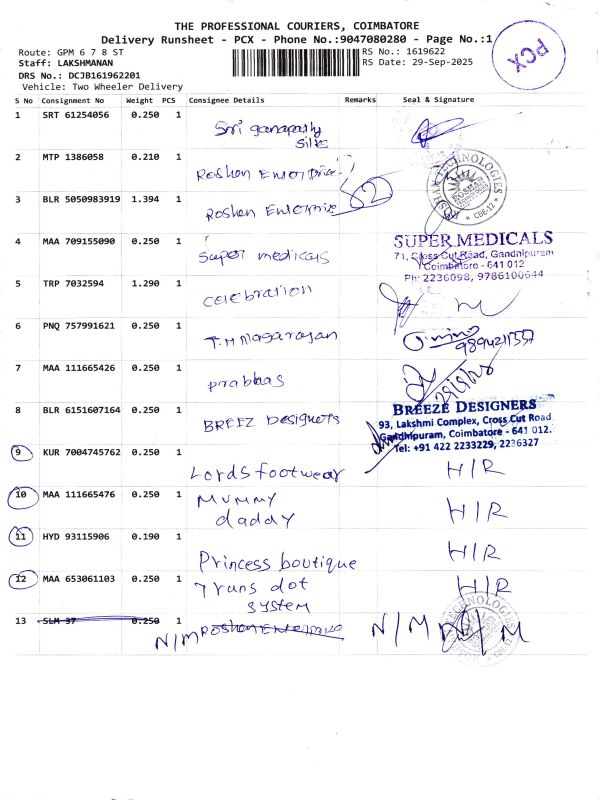 THE PROFESSIONAL COURIERS, COIMBATORE
Delivery Runsheet - PCX - Phone No.:9047080280 - Page No.:1
PCX
Route: GPM 6 7 8 ST
RS No.: 1619622
Staff: LAKSHMANAN
RS Date: 29-Sep-2025
DRS No.: DCJB161962201
Vehicle: Two Wheeler Delivery
S No Consignment No Weight PCS Consignee Details Remarks Seal & Signature
1 SRT 61254056 0.250 1 Sri ganapathy
Silks
2 MTP 1386058 0.210 1 Roshan Enterprise
3 BLR 5050983919 1.394 1 Roshan Enterprise 82
ROSHAN TECHNOLOGIES
CBE-12
4 MAA 709155090 0.250 1 Super medicals
SUPER MEDICALS
71, Cross Cut Road, Gandhipuram
Coimbatore - 641 012
Ph: 2236098, 9786100644
5 TRP 7032594 1.290 1 celebration
6 PNQ 757991621 0.250 1 T.M Nagarajan
7 MAA 111665426 0.250 1 prabhas
8 BLR 6151607164 0.250 1 BREEZ Designers
BREEZE DESIGNERS
93, Lakshmi Complex, Cross Cut Road
Gandhipuram, Coimbatore - 641 012.
Tel: +91 422 2233229, 2236327
9 KUR 7004745762 0.250 1 Lords footwear H/R
10 MAA 111665476 0.250 1 Mummy
daddy H/R
11 HYD 93115906 0.190 1 Princess boutique H/R
12 MAA 653061103 0.250 1 Trans dot
system H/R
13 SLM 37 0.250 1
N/M Roshan Enterprise N/M N/M